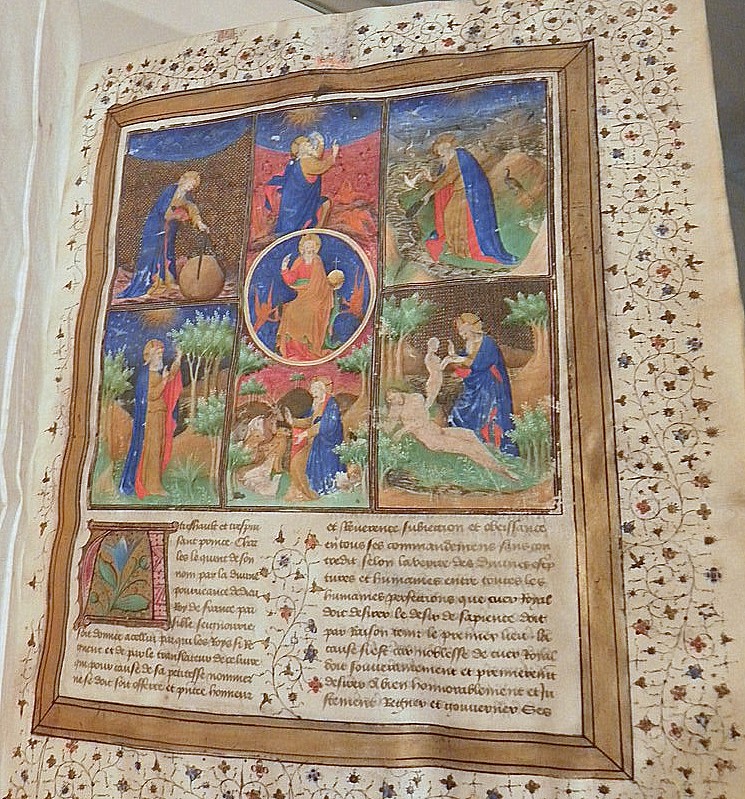 A treshault et trespuis
sant prince Char
les le quint de son
nom par la diuine
pourueance de dieu
Roy de france pai
sible seigneurie
soit donnee a celui par qui les Roys si Re
gnent et de par le translateur de ce liure
qui pour cause de sa petitesse nommer
ne se doit soit offerte et prinse honneur
et Reuerence subiection et obeissance
en tous ses commandemens sans con
tredit selon la verite des diuines escrip
tures et humaines entre toutes les
humaines perfections que cuer Royal
doit desirer le desir de sapience doit
par Raison tenir le premier lieu la
cause si est car noblesse de cuer Royal
doit souuerainement et premierement
desirer a bien honnorablement et Iu
stement Regner et gouuerner ses